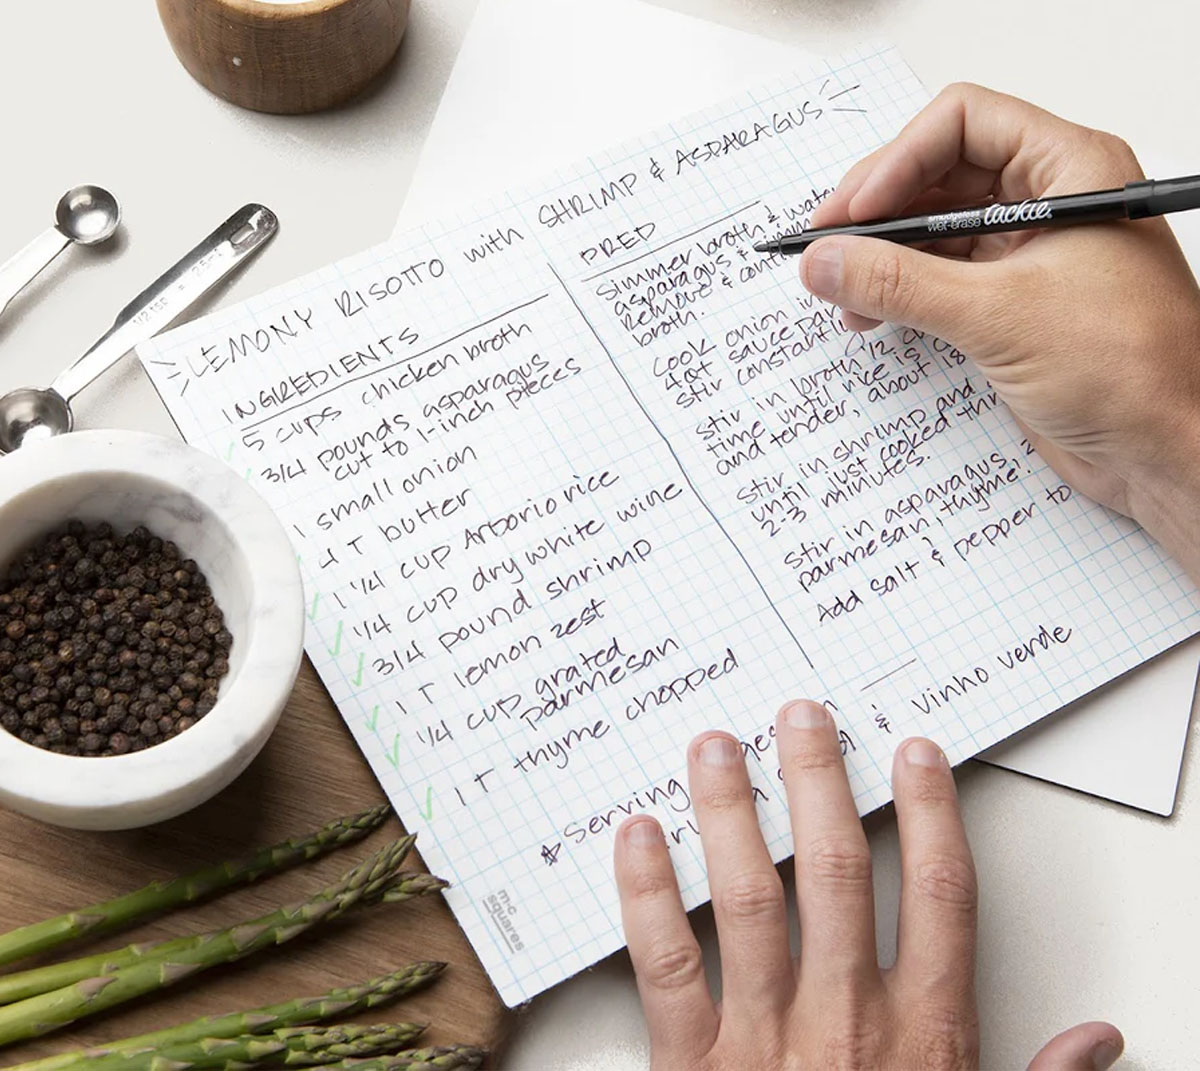 LEMONY RISOTTO with SHRIMP & ASPARAGUS
INGREDIENTS
5 cups chicken broth
3/4 pounds asparagus
cut to 1-inch pieces
1 small onion
4 T butter
1 1/4 cup Arborio rice
1/4 cup dry white wine
3/4 pound shrimp
1 T lemon zest
1/4 cup grated
parmesan
1 T thyme chopped
PREP
Simmer broth &
asparagus &
Remove &
broth.
Cook onion in
4qt saucepan
stir
Stir in broth 1/2
time until rice is
and tender, about 18
Stir in shrimp and
until just cooked
2-3 minutes.
Stir in asparagus,
parmesan, thyme.
Add salt & pepper to
Serving
& Vinho verde
smudgeless
wet-erase tackie.
1/2 TSP
m.c
squares